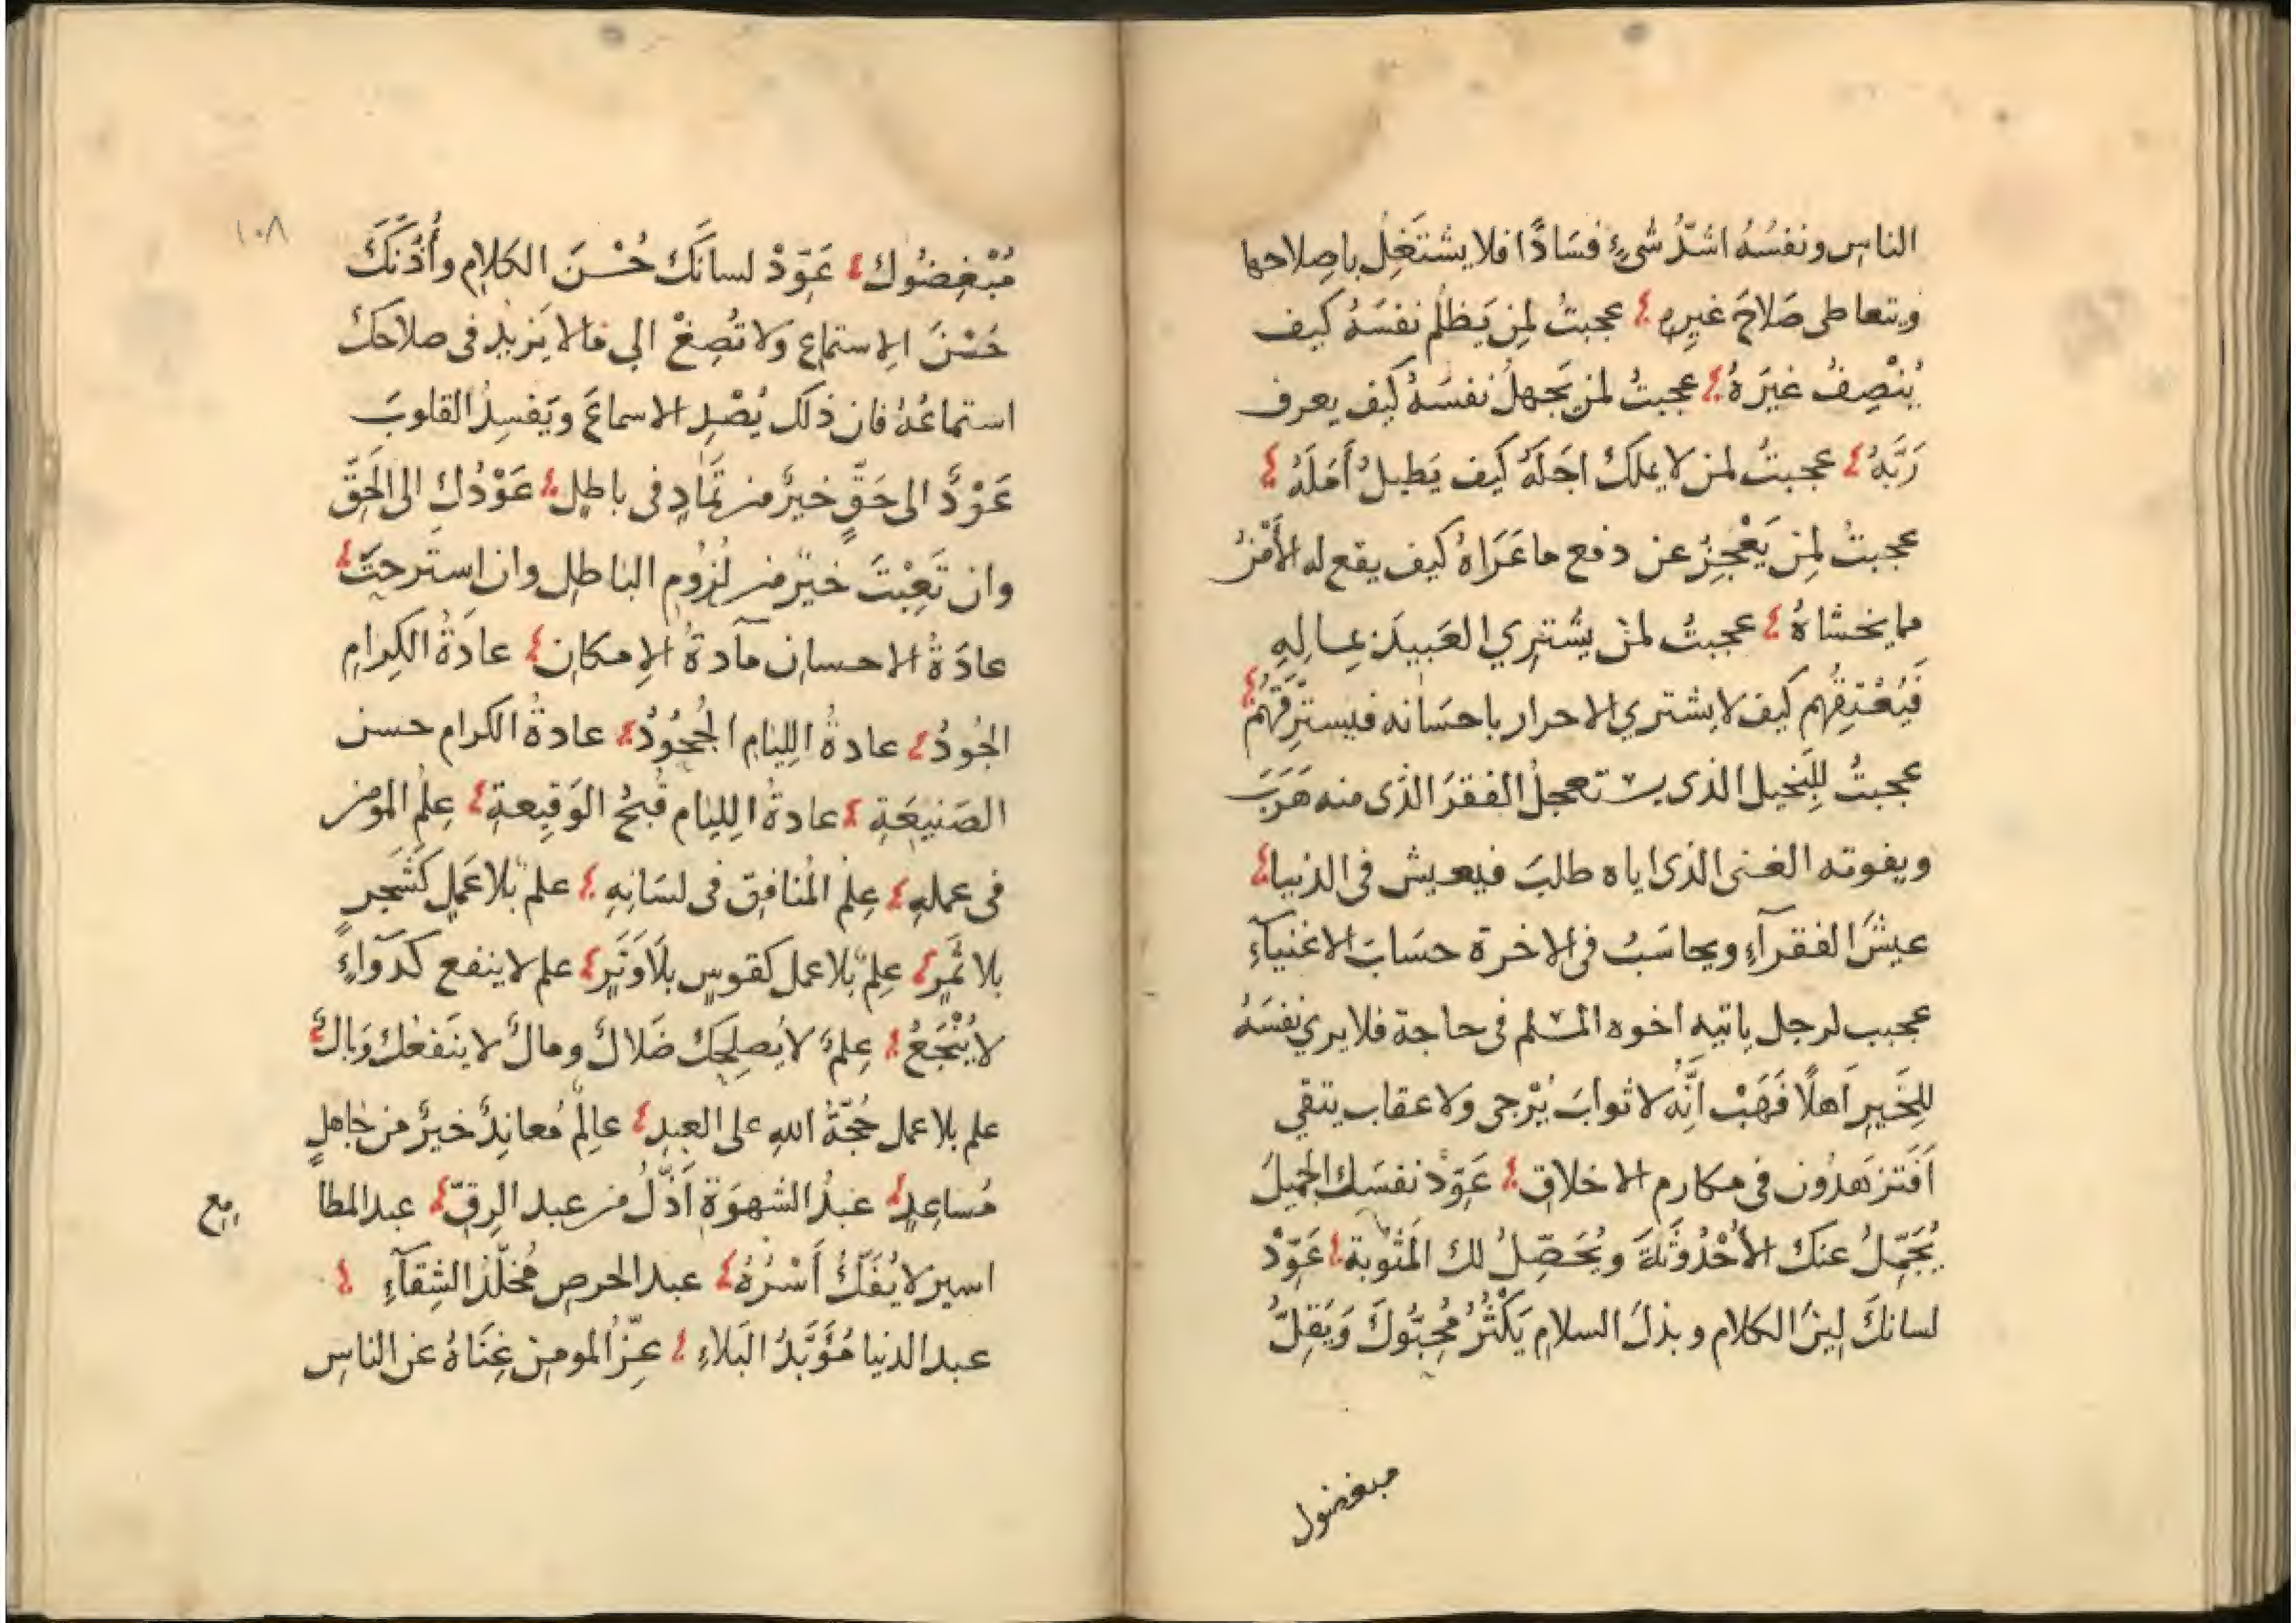 الناسِ ونفسُهُ اشدُّ شىءٍ فسَادًا فلا يشتَغِلُ باصِلاحها
ويتعاطى صَلاحَ غيرِهِ عجبتُ لمِن يَظلُم نفسَهُ كيف
يُنْصِفُ غيَرهُ عجبتُ لمن يَجهلُ نفسَهُ كيف يعرف
رَبَّهُ عجبتُ لمن لا يملكُ اجَلَهُ كيف يَطيلُ أَمَلَهُ
عجبتُ لمِن يَعْجِزُ عن دفع ما عَرَاهُ كيف يقع له الأَمْنُ
مما يخشاهُ عجبتُ لمنْ يشترِي العَبيدَ بمِالِهِ
فَيُعْتِقهُم كيف لا يشتري الاحرار باحسَانه فيسترِقّهُمْ
عجبتُ لِلبَخيل الذى يستعجلُ الفقرَ الذى منه هَرَبَ
ويفوته الغنى الذى اياه طلبَ فيعيش فى الدنيا
عيشَ الفقرآءِ ويحاسَبُ فى الاخرة حسَابَ الاغنيآءِ
عجبب لرجل ياتيه اخوه المسلم فى حاجة فلا يري نفسَهُ
لِلخَيرِ اَهلًا فَهَبْ اَنَّهُ لا ثوابَ يُرْجى ولا عقاب يتقي
اَفَتزهَدُون فى مكارم الاخلاقِ عَوِّدْ نفسَك الجميلَ
يُجَمِّلُ عنكَ الأُحْدُوثَةَ ويُحَصِّلُ لك المَثوُبة عَوِّدْ
لسانكَ لِينَ الكلام وبذلَ السلام يَكْثُرُ مُحِبّوُكَ وَيَقِلُّ
مبغضوك
١٠٨
مُبْغِضُوك عَوِّدْ لسانَكَ حُسْنَ الكلامِ وأُذُنَكَ
حُسْنَ الاِستماعِ ولا تُصِغْ الي ما لا يَزيدُ فى صلاحكَ
استماعُهُ فان ذلك يُصْدِ الاسماعَ ويَفسِدُ القلوبَ
عَوْدٌ الى حَقٍّ خيرٌ من تمَادٍ فى باطلٍ عَوْدُكِ الى الحَقِّ
وان تَعِبْتَ خيرٌ من لزُومِ الباطلِ وان استرحتَ
عادَةُ الاحسانِ مآدةُ الاِمكانِ عادَةُ الكِرامِ
الجُودُ عادةُ اللِيامِ الجُحُودُ عادةُ الكرام حسن
الصَنيعَةِ عادةُ اللِيام قُبحُ الوَقِيعةِ عِلمُ المومن
فى عملهِ عِلمُ المُنافِقِ فى لسَانِهِ علمٌ بلا عَملٍ كَشَجرٍ
بلا ثمَرٍ عِلمٌ بلا عمل كقوسٍ بلَا وَتَرٍ علم لا ينفع كدَوآءٍ
لا يُنْجَعُ عِلمٌ لا يُصلِحكَ ضَلالٌ ومالٌ لا ينَفعُك وَبالٌ
علم بلا عمل حُجّةُ اللهِ على العبدِ عالِمٌ مُعانِدٌ خيرٌ من جاهلٍ
مُساعِدٍ عَبدُ الشهوَةِ اَذَلُّ من عبد الرِقِّ عبد المطا
مع
اسير لا يُفَكُّ أَسْرُهُ عبد الحرصِ مُخلّدُ الشِقآءِ
عبد الدنيا مُؤَبَّدُ البَلاءِ عِزُّ المومنِ غِنَاهُ عن الناسِ